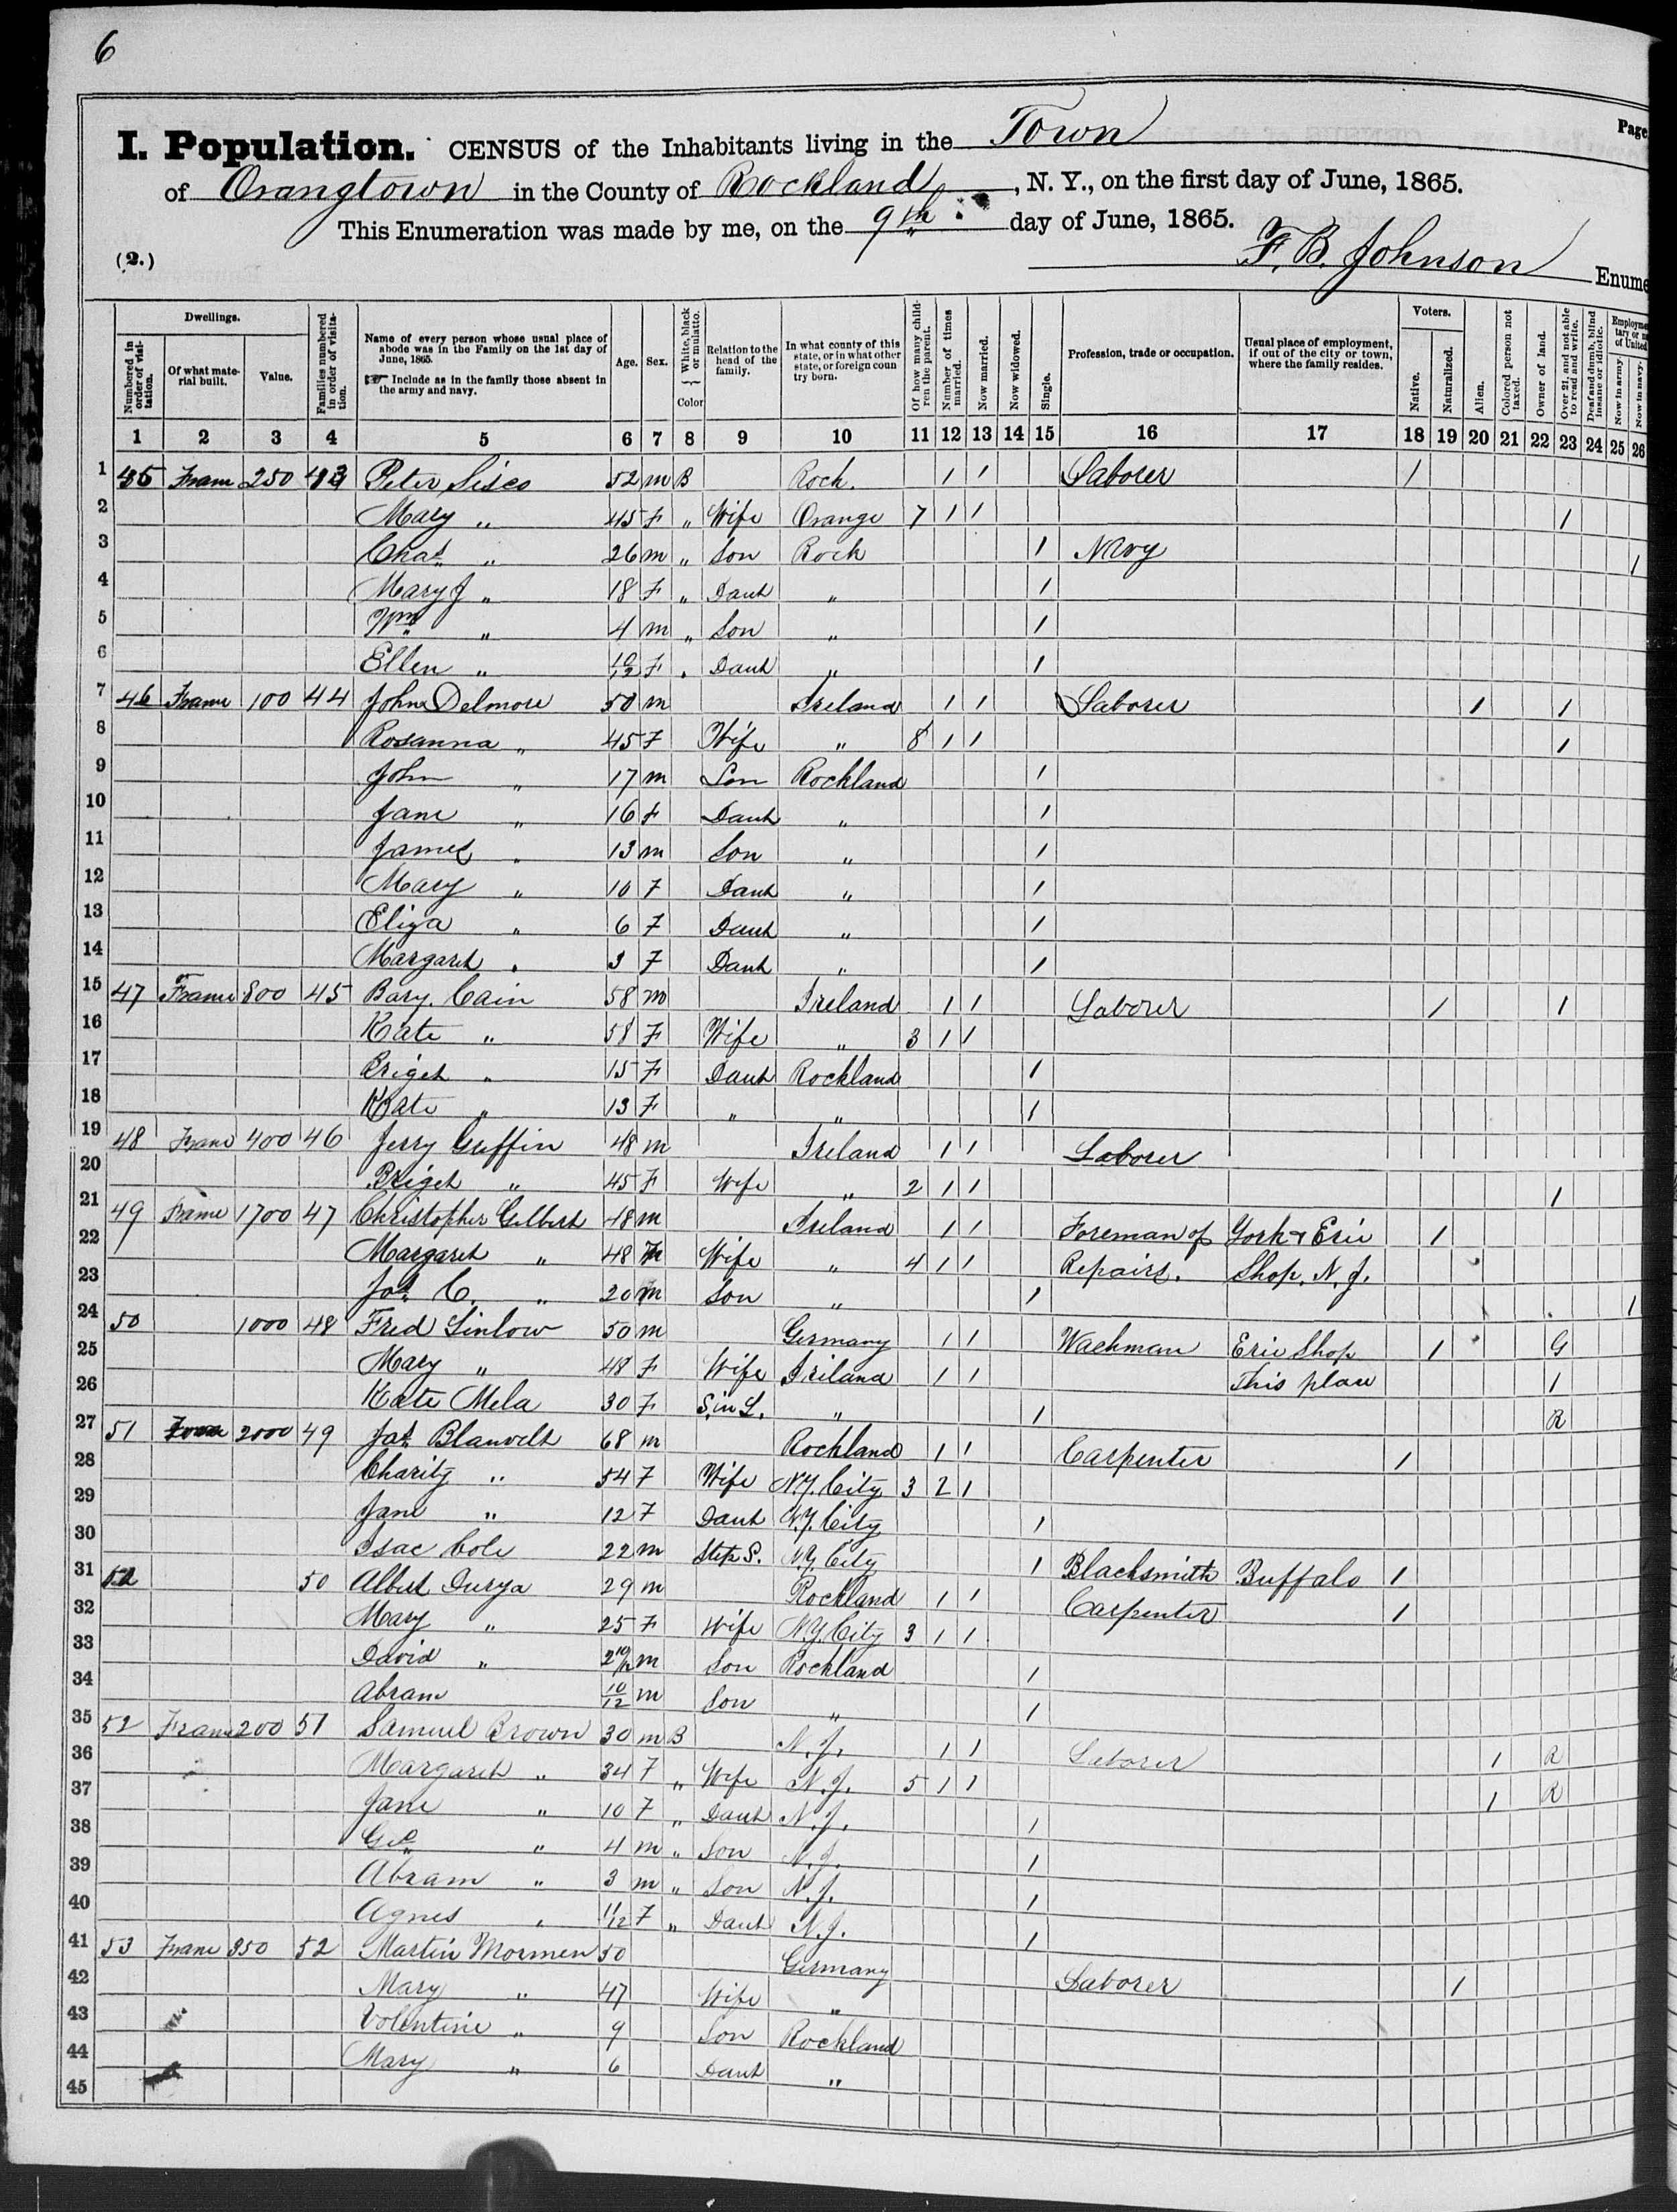 6
I. Population. CENSUS of the Inhabitants living in the Town Page
of Orangtown in the County of Rockland, N. Y., on the first day of June, 1865.
This Enumeration was made by me, on the 9th day of June, 1865.
(2.) F. B. Johnson Enume
Dwellings. Voters.
Numbered in order of visitation. Of what material built. Value. Families numbered in order of visitation. Name of every person whose usual place of abode was in the Family on the 1st day of June, 1865. Include as in the family those absent in the army and navy. Age. Sex. White, black or mulatto. Color Relation to the head of the family. In what county of this state, or in what other state, or foreign country born. Of how many children the parent. Number of times married. Now married. Now widowed. Single. Profession, trade or occupation. Usual place of employment, if out of the city or town, where the family resides. Native. Naturalized. Alien. Colored person not taxed. Owner of land. Over 21, and not able to read and write. Deaf and dumb, blind insane or idiotic. Now in army. Now in navy.
1 2 3 4 5 6 7 8 9 10 11 12 13 14 15 16 17 18 19 20 21 22 23 24 25 26
1 45 Fram 250 43 Peter Sisco 52 m B Roch. 1 1 Laborer 1
2 Mary " 45 F " Wife Orange 7 1 1 1
3 Chas " 26 m " Son Rock 1 Navy 1
4 Mary J " 18 F " Dauh " 1
5 Wm " 4 m " Son " 1
6 Ellen " 10/12 F " Dauh " 1
7 46 Frame 100 44 John Delmore 50 m Ireland 1 1 Laborer 1 1
8 Rosanna " 45 F Wife " 8 1 1 1
9 John " 17 m Son Rockland 1
10 Jane " 16 F Dauh " 1
11 James " 13 m Son " 1
12 Mary " 10 F Dauh " 1
13 Eliza " 6 F Dauh " 1
14 Margareh " 3 F Dauh " 1
15 47 Frame 800 45 Bary Cain 58 m Ireland 1 1 Laborer 1 1
16 Kate " 58 F Wife " 3 1 1
17 Brigeh " 15 F Dauh Rockland 1
18 Kate " 13 F " " 1
19 48 Frame 400 46 Jerry Griffin 48 m Ireland 1 1 Laborer
20 Brigeh " 45 F Wife " 2 1 1 1
21 49 Frame 1700 47 Christopher Gilbert 48 m Ireland 1 1 Foreman of York & Erie 1
22 Margareh " 48 Wife " 4 1 1 Repairs. Shop. N. J.
23 Jos. C. " 20 m Son " 1 1
24 50 1000 48 Fred Linlow 50 m Germany 1 1 Wachman Erie Shop 1 G
25 Mary " 48 F Wife Iriland 1 1 This place 1
26 Kate Mela 30 F S. in L. " 1 R
27 51 2000 49 Jas. Blauvelt 68 m Rockland 1 1 Carpenter 1
28 Charity " 54 F Wife N.Y. City 3 2 1
29 Jane " 12 F Dauh N.Y. City 1
30 Isac Cole 22 m Step S. N.Y. City 1 Blacksmith Buffalo 1
31 52 50 Albert Durya 29 m Rockland 1 1 Carpenter 1
32 Mary " 25 F Wife N.Y. City 3 1 1
33 David " 2 10/12 m Son Rockland 1
34 Abram 10/12 m Son " 1
35 52 Frame 200 51 Samuel Brown 30 m B N. J. 1 1 Laborer 1 R
36 Margareh " 34 F " Wife N. J. 5 1 1 1 R
37 Jane " 10 F " Dauh N. J. 1
38 Geo " 4 m " Son N. J. 1
39 Abram " 3 m " Son N. J. 1
40 Agnes " 11/12 F " Dauh N. J. 1
41 53 Frame 350 52 Martin Mormen 50 Germany
42 Mary " 47 Wife " Laborer 1
43 Volentine " 9 Son Rockland
44 Mary " 6 Dauh "
45